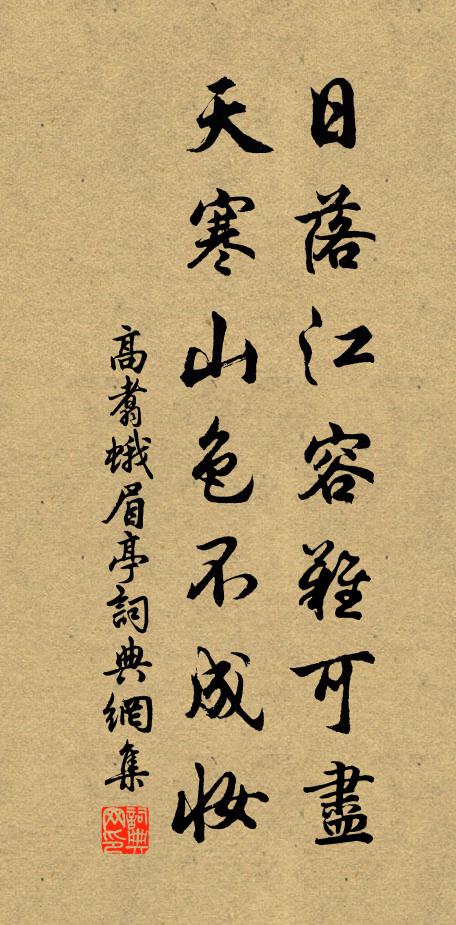 日落江容難可盡
天寒山色不成妝
高翥蛾眉亭詞典網集
詞典
网印